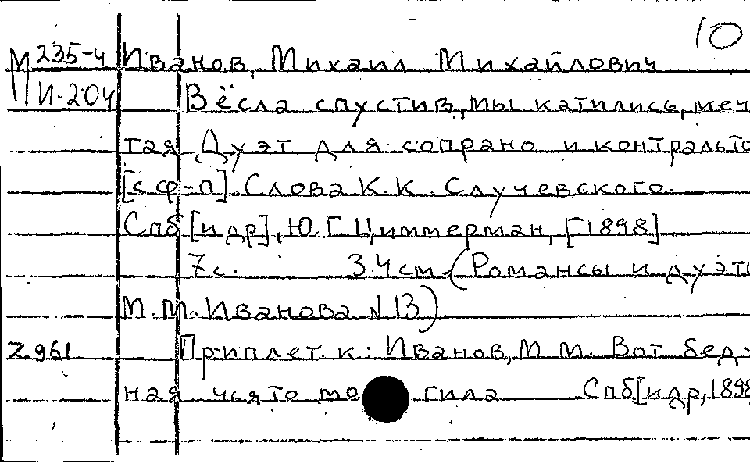 10
М 235-4 Иванов, Михаил Михайлович
И-204 Вёсла спустив, мы катились, меч
тая. Дуэт для сопрано и контральто
[с ф-п]. Слова К.К. Случевского.
Спб [и др], Ю.Г. Циммерман, [1898]
7с. 34см (Романсы и дуэты
М.М. Иванова N 13)
2961 Приплет к: Иванов, М.М. Вот бед-
ная чья-то могила Спб [и др, 1898